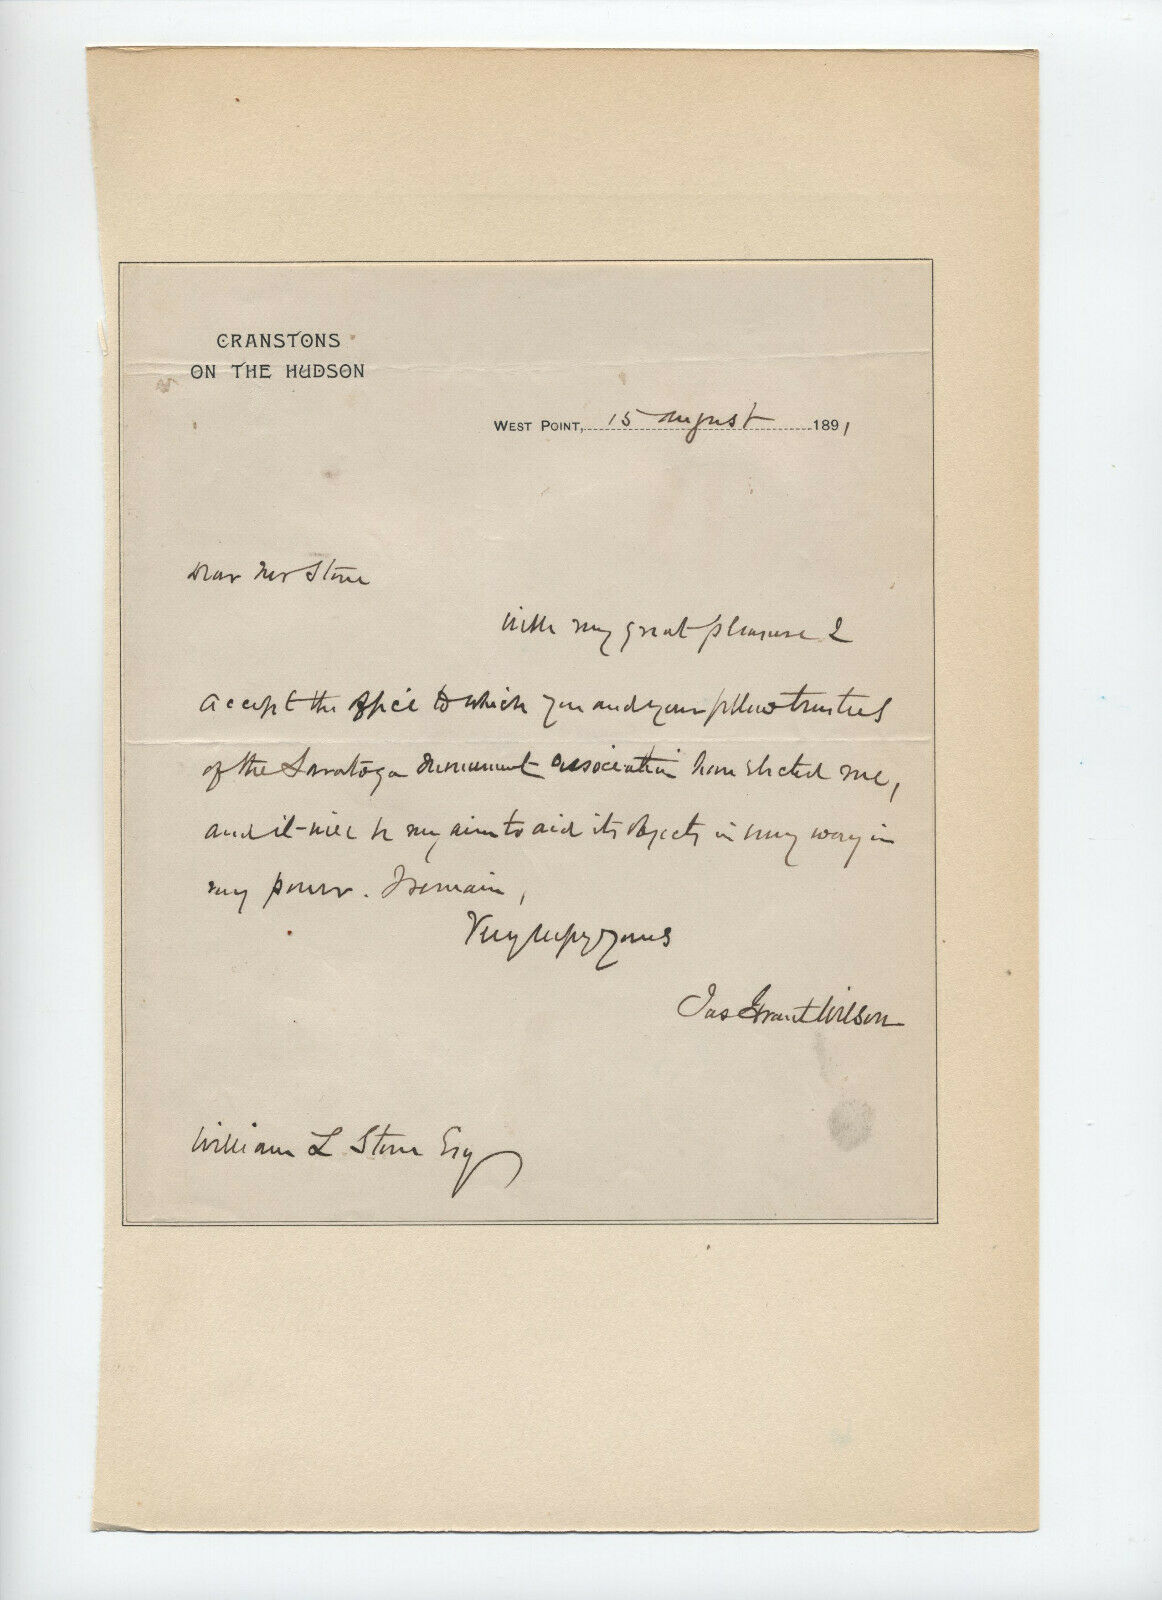 CRANSTONS
ON THE HUDSON
WEST POINT, 15 August 1891
Dear Mr Stone
With very great pleasure I
accept the office to which you and your fellow trustees
of the Saratoga Monument Association have elected me,
and it will be my aim to aid its objects in every way in
my power. I remain,
Very truly yours
Jas Grant Wilson
William L Stone Esq